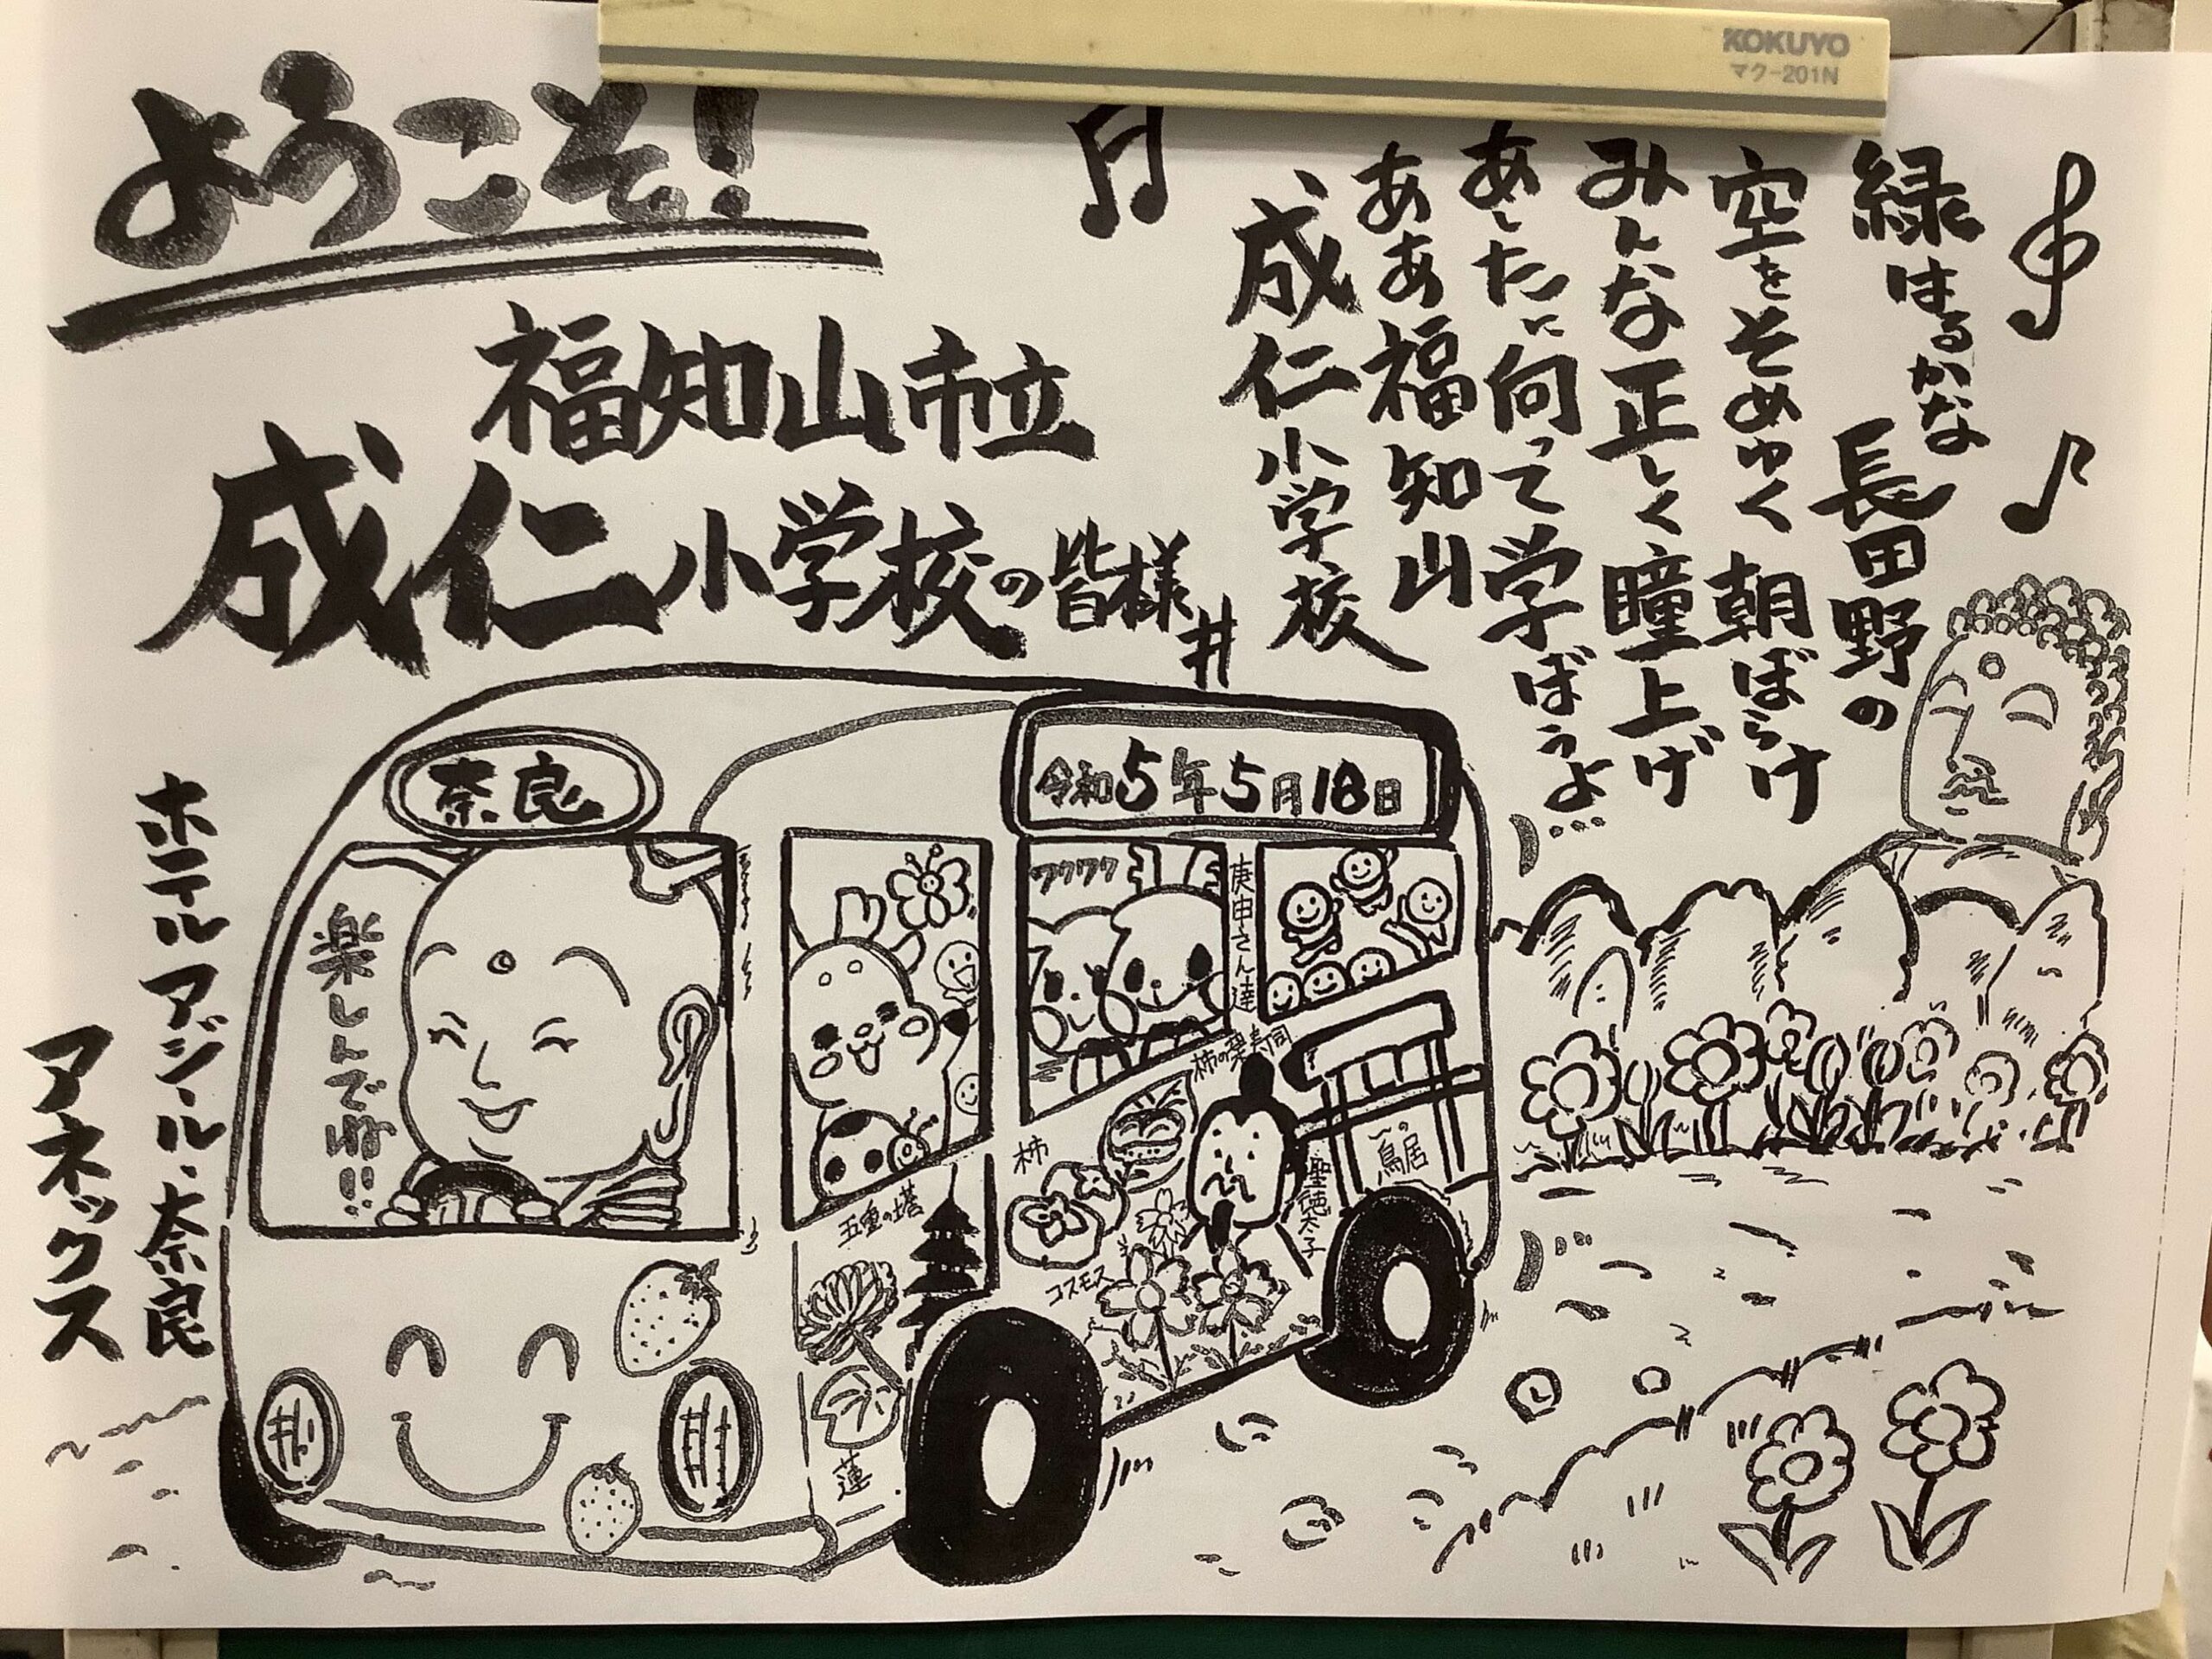 KOKUYO
マク-201N
ようこそ!
福知山市立
成仁小学校の皆様
緑はるかな長田野の
空をそめゆく朝ぼらけ
みんな正しく瞳上げ
あしたに向って学ぼうよ
ああ福知山
成仁小学校
奈良
令和5年5月18日
楽しんでね!!
ワクワク
庚申さん達
柿の葉寿司
柿
聖徳太子
一の鳥居
五重の塔
コスモス
蓮
ホテルアジール・奈良
アネックス